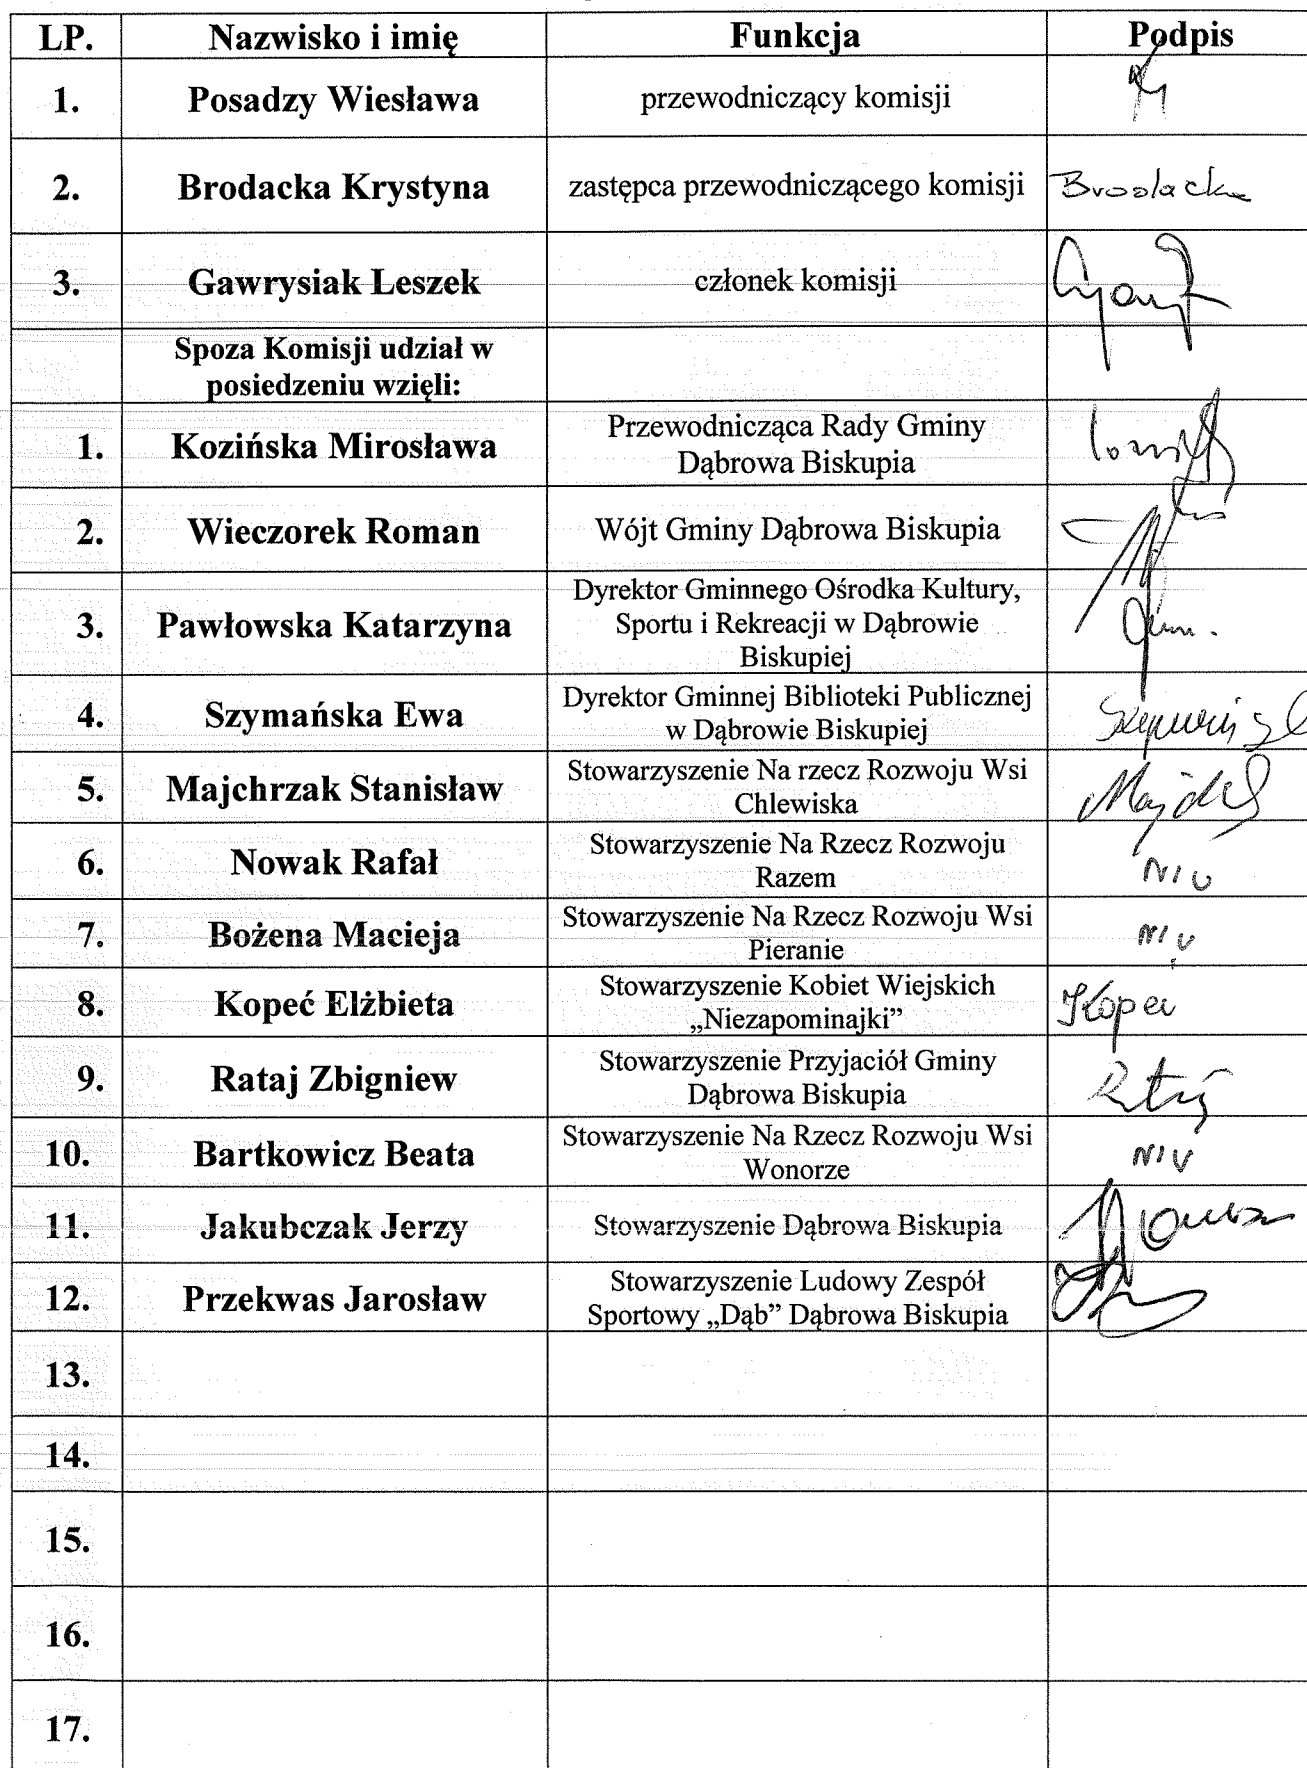 LP. Nazwisko i imię Funkcja Podpis
1. Posadzy Wiesława przewodniczący komisji
2. Brodacka Krystyna zastępca przewodniczącego komisji Brodacka
3. Gawrysiak Leszek członek komisji
Spoza Komisji udział w
posiedzeniu wzięli:
1. Kozińska Mirosława Przewodnicząca Rady Gminy
Dąbrowa Biskupia
2. Wieczorek Roman Wójt Gminy Dąbrowa Biskupia
3. Pawłowska Katarzyna Dyrektor Gminnego Ośrodka Kultury,
Sportu i Rekreacji w Dąbrowie
Biskupiej
4. Szymańska Ewa Dyrektor Gminnej Biblioteki Publicznej
w Dąbrowie Biskupiej
5. Majchrzak Stanisław Stowarzyszenie Na rzecz Rozwoju Wsi
Chlewiska
6. Nowak Rafał Stowarzyszenie Na Rzecz Rozwoju
Razem
7. Bożena Macieja Stowarzyszenie Na Rzecz Rozwoju Wsi
Pieranie
8. Kopeć Elżbieta Stowarzyszenie Kobiet Wiejskich
„Niezapominajki” Kopeć
9. Rataj Zbigniew Stowarzyszenie Przyjaciół Gminy
Dąbrowa Biskupia
10. Bartkowicz Beata Stowarzyszenie Na Rzecz Rozwoju Wsi
Wonorze
11. Jakubczak Jerzy Stowarzyszenie Dąbrowa Biskupia
12. Przekwas Jarosław Stowarzyszenie Ludowy Zespół
Sportowy „Dąb” Dąbrowa Biskupia
13.
14.
15.
16.
17.